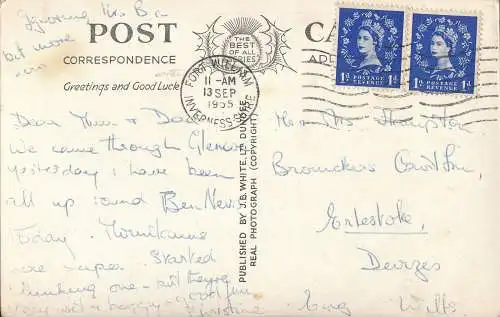 Ignoring Mrs B
but more
POST
CORRESPONDENCE
Greetings and Good Luck
THE
BEST
OF ALL
SERIES
FORT WILLIAM
11-AM
13 SEP
1955
INVERNESS-SHIRE
POSTAGE
REVENUE
1D 1D
POSTAGE
REVENUE
1D 1D
PUBLISHED BY J.B. WHITE, LTD. DUNDEE
REAL PHOTOGRAPH (COPYRIGHT)
Dear Mum & Dad
We came through Glencoe
yesterday I have been
all up round Ben Nevis
today. Mountains
are super. Started
thinking one - but they're
very wet & boggy. Good fun
Christine
Mr & Mrs
Court Inn,
Erlestoke,
Devizes
Eng Wilts.